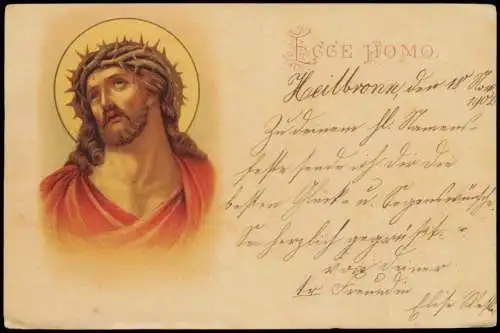 ECCE HOMO.
Heilbronn, den 18 Nov.
1902
Zu deinem hl. Namens-
feste sende ich dir die
besten Glück- u. Segenswünsche
Sei herzlich gegrüßt
von deiner
tr Freundin
Elise